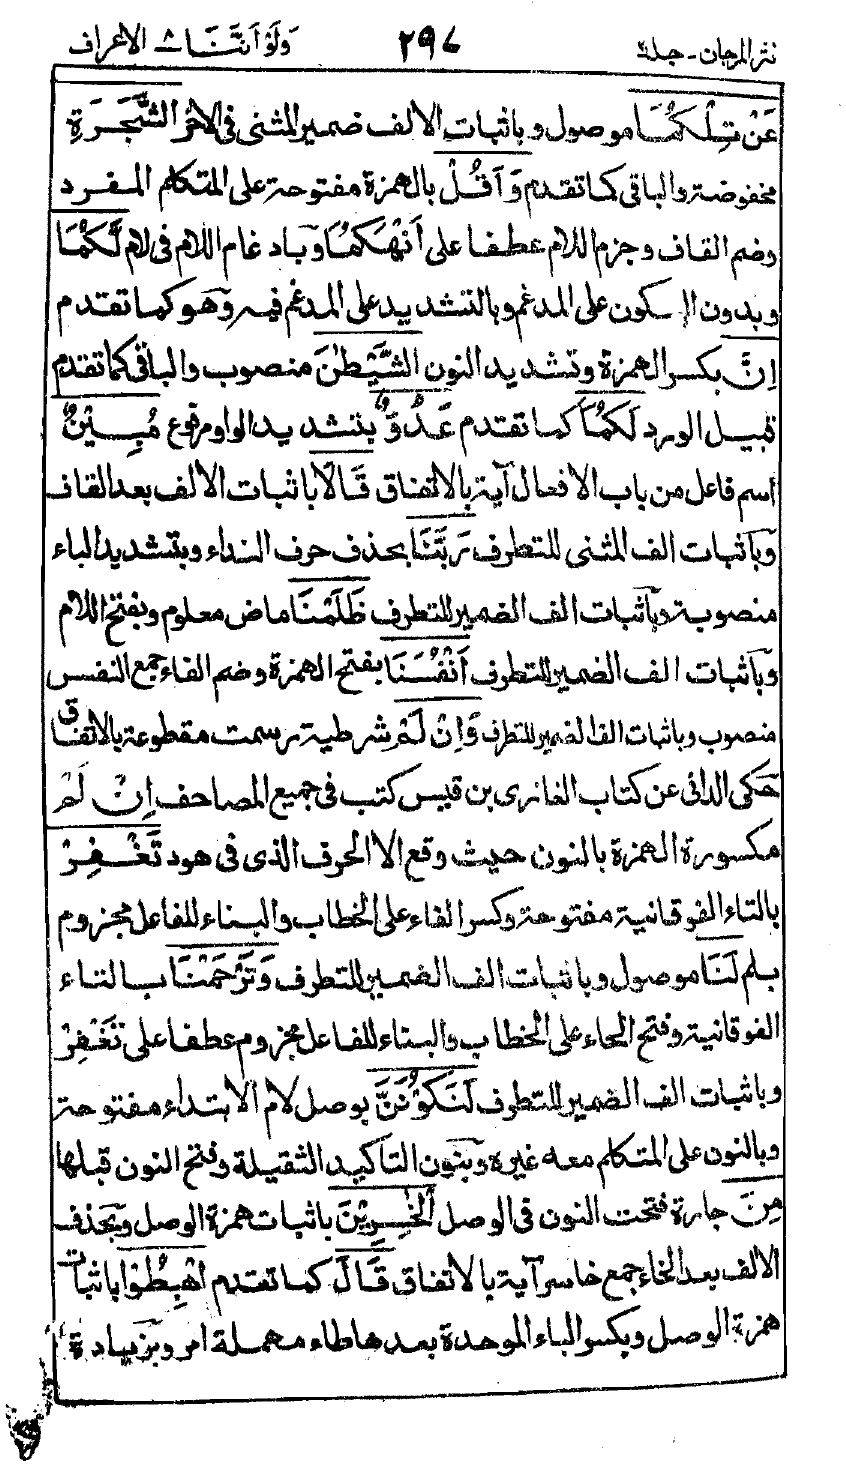 نثر المرجان - جلد ٢ ٢٩٧ ولو أننا ٨ الاعراف
عَنْ تِلْكُمَا موصول وباثبات الالف ضمير المثنى فى الاخر الشَّجَرَةِ
مخفوضة والباقى كما تقدم وَاَقُلْ بالهمزة مفتوحة على المتكلم المفرد
وضم القاف وجزم اللام عطفا على اَنْهَكُمَا وبادغام اللام فى لام لَّكُمَا
وبدون السكون على المدغم وبالتشديد على المدغم فيه وهو كما تقدم
اِنَّ بكسر الهمزة وتشديد النون الشَّيْطٰنَ منصوب والباقى كما تقدم
قبيل الورد لَكُمَا كما تقدم عَدُوٌّ بتشديد الواو مرفوع مُبِيْنٌ
اسم فاعل من باب الافعال آية بالاتفاق قَالَا باثبات الالف بعد القاف
وباثبات الف المثنى للتطرف رَبَّنَا بحذف حرف النداء وبتشديد الباء
منصوبة وباثبات الف الضمير للتطرف ظَلَمْنَا ماض معلوم وبفتح اللام
وباثبات الف الضمير للتطرف اَنْفُسَنَا بفتح الهمزة وضم الفاء جمع النفس
منصوب وباثبات الف الضمير للتطرف وَاِنْ لَمْ شرطية رسمت مقطوعة بالاتفاق
حكى الدانى عن كتاب الغازى بن قيس كتب فى جميع المصاحف اِنْ لَمْ
مكسورة الهمزة بالنون حيث وقع الا الحرف الذى فى هود تَغْفِرْ
بالتاء الفوقانية مفتوحة وكسر الفاء على الخطاب والبناء للفاعل مجزوم
بلم لَنَا موصول وباثبات الف الضمير للتطرف وَتَرْحَمْنَا بالتاء
الفوقانية وفتح الحاء على الخطاب والبناء للفاعل مجزوم عطفا على تَغْفِرْ
وباثبات الف الضمير للتطرف لَنَكُوْنَنَّ بوصل لام الابتداء مفتوحة
وبالنون على المتكلم معه غيره وبنون التاكيد الثقيلة وفتح النون قبلها
مِنَ جارة فتحت النون فى الوصل الْخٰسِرِيْنَ باثبات همزة الوصل وبحذف
الالف بعد الخاء جمع خاسر آية بالاتفاق قَالَ كما تقدم اهْبِطُوْا باثبات
همزة الوصل وبكسر الباء الموحدة بعدها طاء مهملة امر وبزيادة